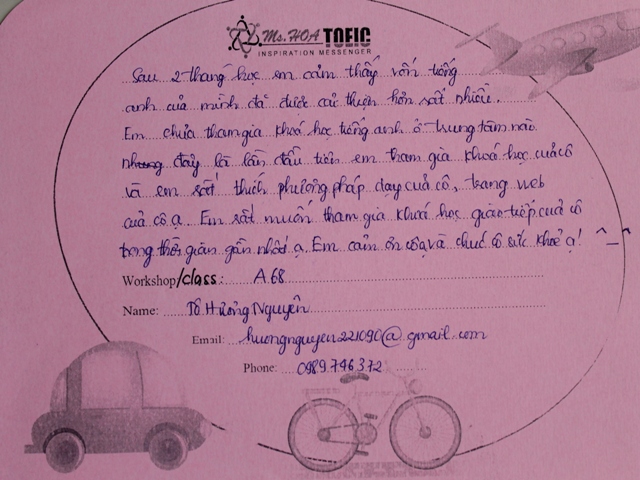 Ms. HOA TOEIC
INSPIRATION MESSENGER
Sau 2 tháng học em cảm thấy vốn tiếng
anh của mình đã được cải thiện hơn rất nhiều.
Em chưa tham gia khoá học tiếng anh ở trung tâm nào.
nhưng đây là lần đầu tiên em tham gia khoá học của cô
và em rất thích phương pháp dạy của cô, trang web
của cô ạ. Em rất muốn tham gia khoá học giao tiếp của cô
trong thời gian gần nhất ạ. Em cảm ơn cô ạ và chúc cô sức khoẻ ạ! ^_^
Workshop/class: A68
Name: Tô Hương Nguyên
Email: huongnguyen221090@gmail.com
Phone: 0989.746.372